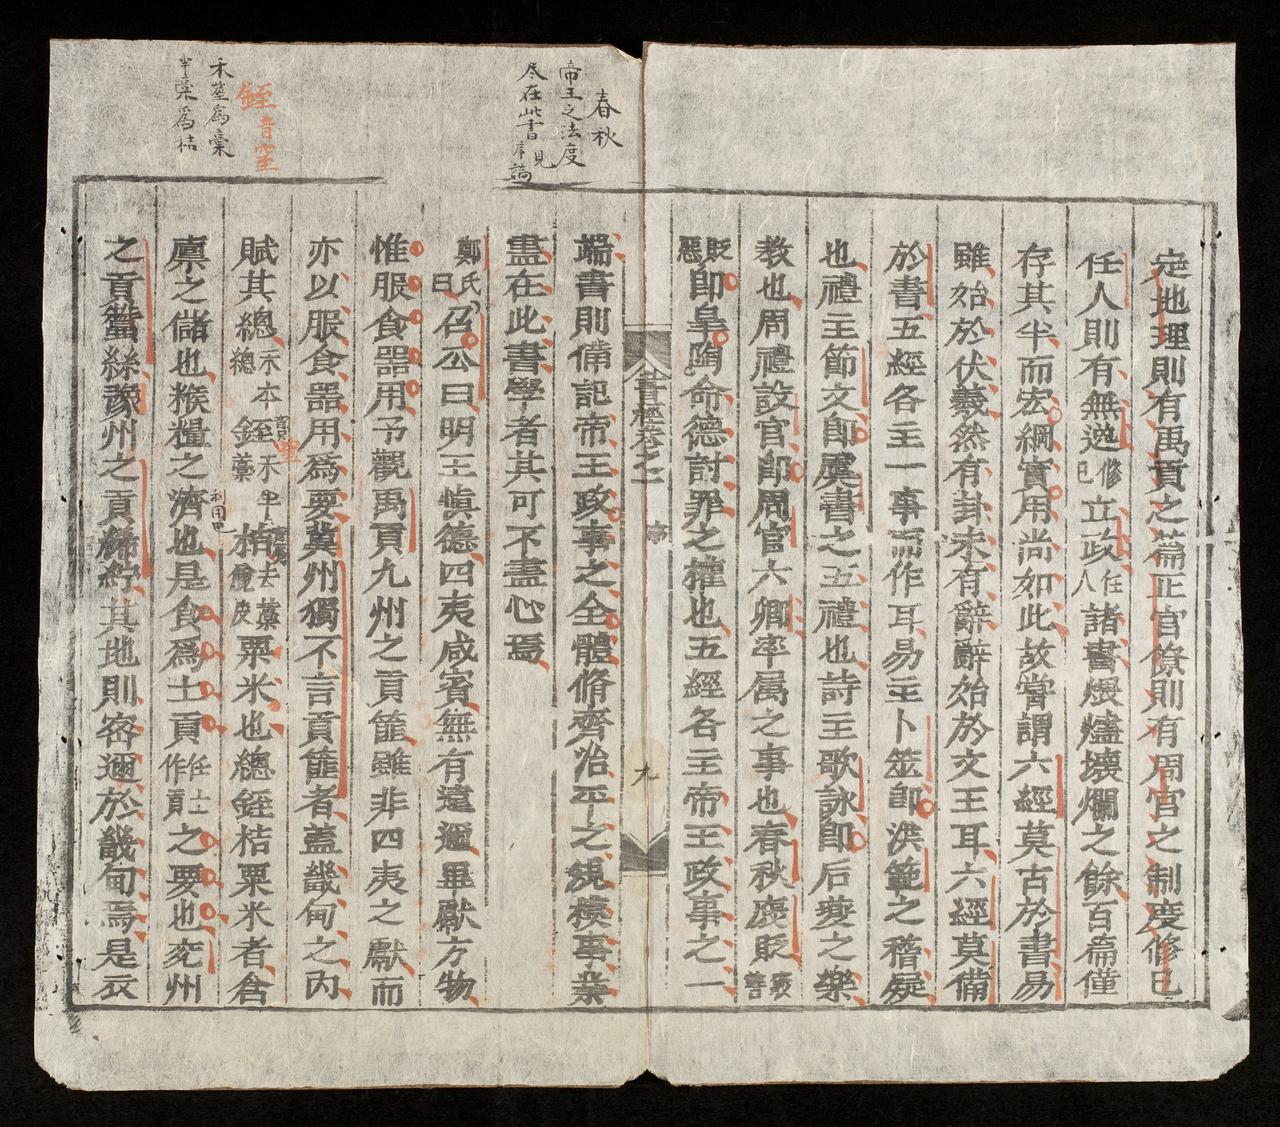 春秋
帝王之法度
尽在此書見
序論
銍音窒
禾莖爲稾
半稾爲秸
定地理則有禹貢之篇正官簝則有周官之制度修已
任人則有無逸修已立政任人諸書煨燼壞爛之餘百篇僅
存其半而宏綱實用尚如此故嘗謂六經莫古於書易
雖始於伏羲然有卦未有辭辭始於文王耳六經莫備
於書五經各主一事而作耳易主卜筮即洪範之稽疑
也禮主節文即虞書之五禮也詩主歌詠即后夔之樂
教也周禮設官即周官六卿率属之事也春秋褒貶褒善
貶惡即皐陶命德討罪之權也五經各主帝王政事之一
書經卷之一
序
九
端書則備記帝王政事之全體脩齊治平之規模事業
盡在此書學者其可不盡心焉
鄭氏曰召公曰明王愼德四夷咸賓無有遠邇畢獻方物
惟服食器用予觀禹貢九州之貢篚雖非四夷之獻而
亦以服食器用爲要兾州獨不言貢篚者蓋畿甸之內
賦其總禾本總銍禾半稾秸去稾粟米也總銍秸粟米者倉
廪之儲也糇糧之濟也是食爲土貢任土作貢之要也兖州
之貢蠶絲豫州之貢絺紵其地則密邇於畿甸焉是衣